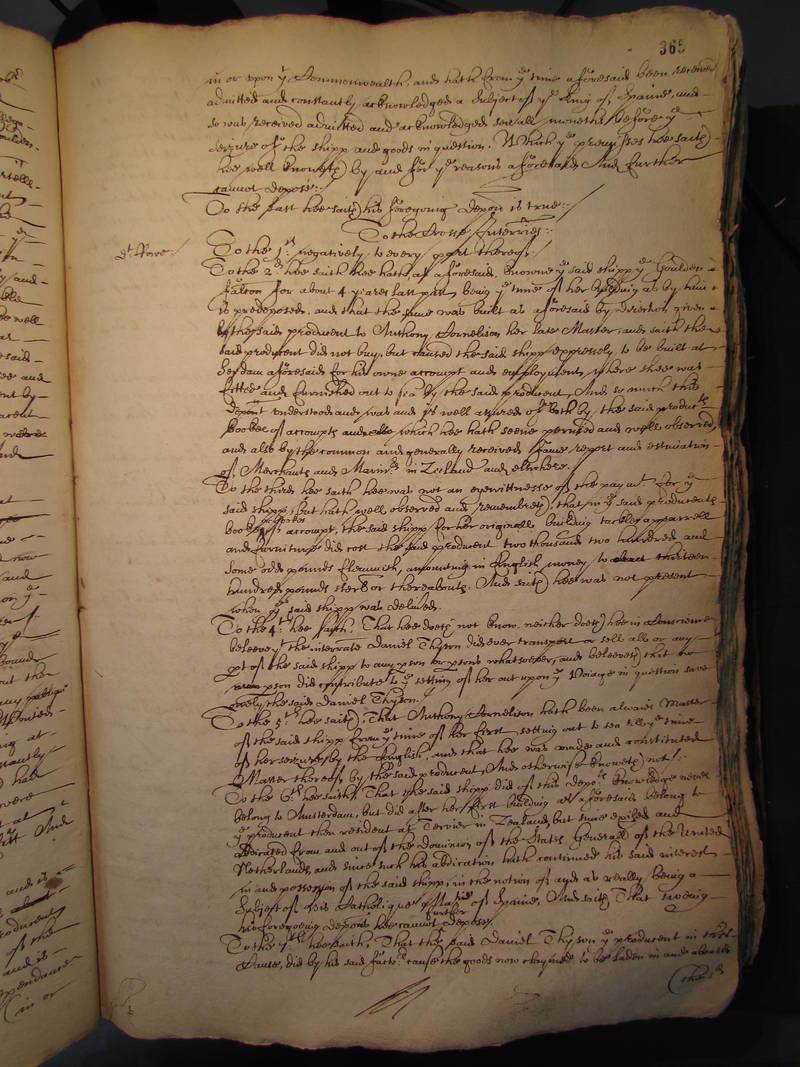 365
in or upon ye Commonwealth, and hath from ye time aforesaid been received
admitted and constantly acknowledged a Subject of ye King of Spaine, and
so was received admitted and acknowledged severall moneths before ye
seizure of the shipp and goods in question. Which ye premisses hee saith
hee well knoweth by and for ye reasons aforesaid And further
cannot depose:
To the last hee saith his foregoing deposicon is true:
To the Crosse Interries:
To the 1st. negatively to every part thereof:
To the 2d hee saith hee hath as aforesaid knowne ye said shipp ye Goulden
falcon for about 4 yeares last past, being ye time of her building as by him
is predeposed, and that the same was built as aforesaid by direction given
by the said producent to Anthony Cornelison her late Master, and saith the
said producent did not buy, but caused the said shipp expressely to be built at
aforesaid for his owne accompt and employment, where shee was
fitted and furnished out to sea by the said producent, And so much this
deponent understood and was and is well assured of both by the said producents
bookes of accompts which hee hath seene perused and well observed,
and also by the common and generally received fame report and estimation
of Merchants and Marinrs in Zeeland and elswhere.
To the third hee saith hee was not an eyewittnesse of the paymt for ye
said shipp, But hath well observed and remembreth, that in ye said producents
bookes of accompt, the said shipp for her originall building tackle apparrell
and furniture did cost the said producent two thousand two hundred and
some odd pounds flemmish, amounting in English money to thirteen
hundred pounds sterl or thereabouts. And saith hee was not present
when ye said shipp was delived.
To the 4th. hee saith, That hee doeth not know, neither doeth hee in Conscience
beleeve yt the interrate Daniel Thyson did ever transport or sell all or any
pt of the said shipp to any pson or psons whatsoever, and beleeveth that no
pson did contribute to ye setting of her out upon ye Voiage in question save
onely the said Daniel Thyson.
To the 5th. hee saith, That Anthony Cornelison hath been alwaies Master
of the said shipp from ye time of her first setting out to sea till ye time
of her seizure by the English, and that hee was made and constituted
Master thereof by the said producent, And otherwise knoweth not:
To the 6th. hee saith, That the said shipp did of this depots knowledge never
belong to Amsterdam, but did after her first building as aforesaid belong to
ye producent then resident at Terveer in Zealand, but since exiled and
abdicated from and out of the dominion of the States Generall of the United
Netherlands, and since such his abdication hath continued his said interest
in and possession of the said shipp, in the notion of and as really being a
Subject of his Catholique Matie of Spaine, And saith That saving
his foregoing deposicon hee cannot further depose
To the 7th hee saith, That the said Daniel Thyson ye producent in this
Cause, did by his said factor cause the goods now claymed to be laden in and aboard
the sd